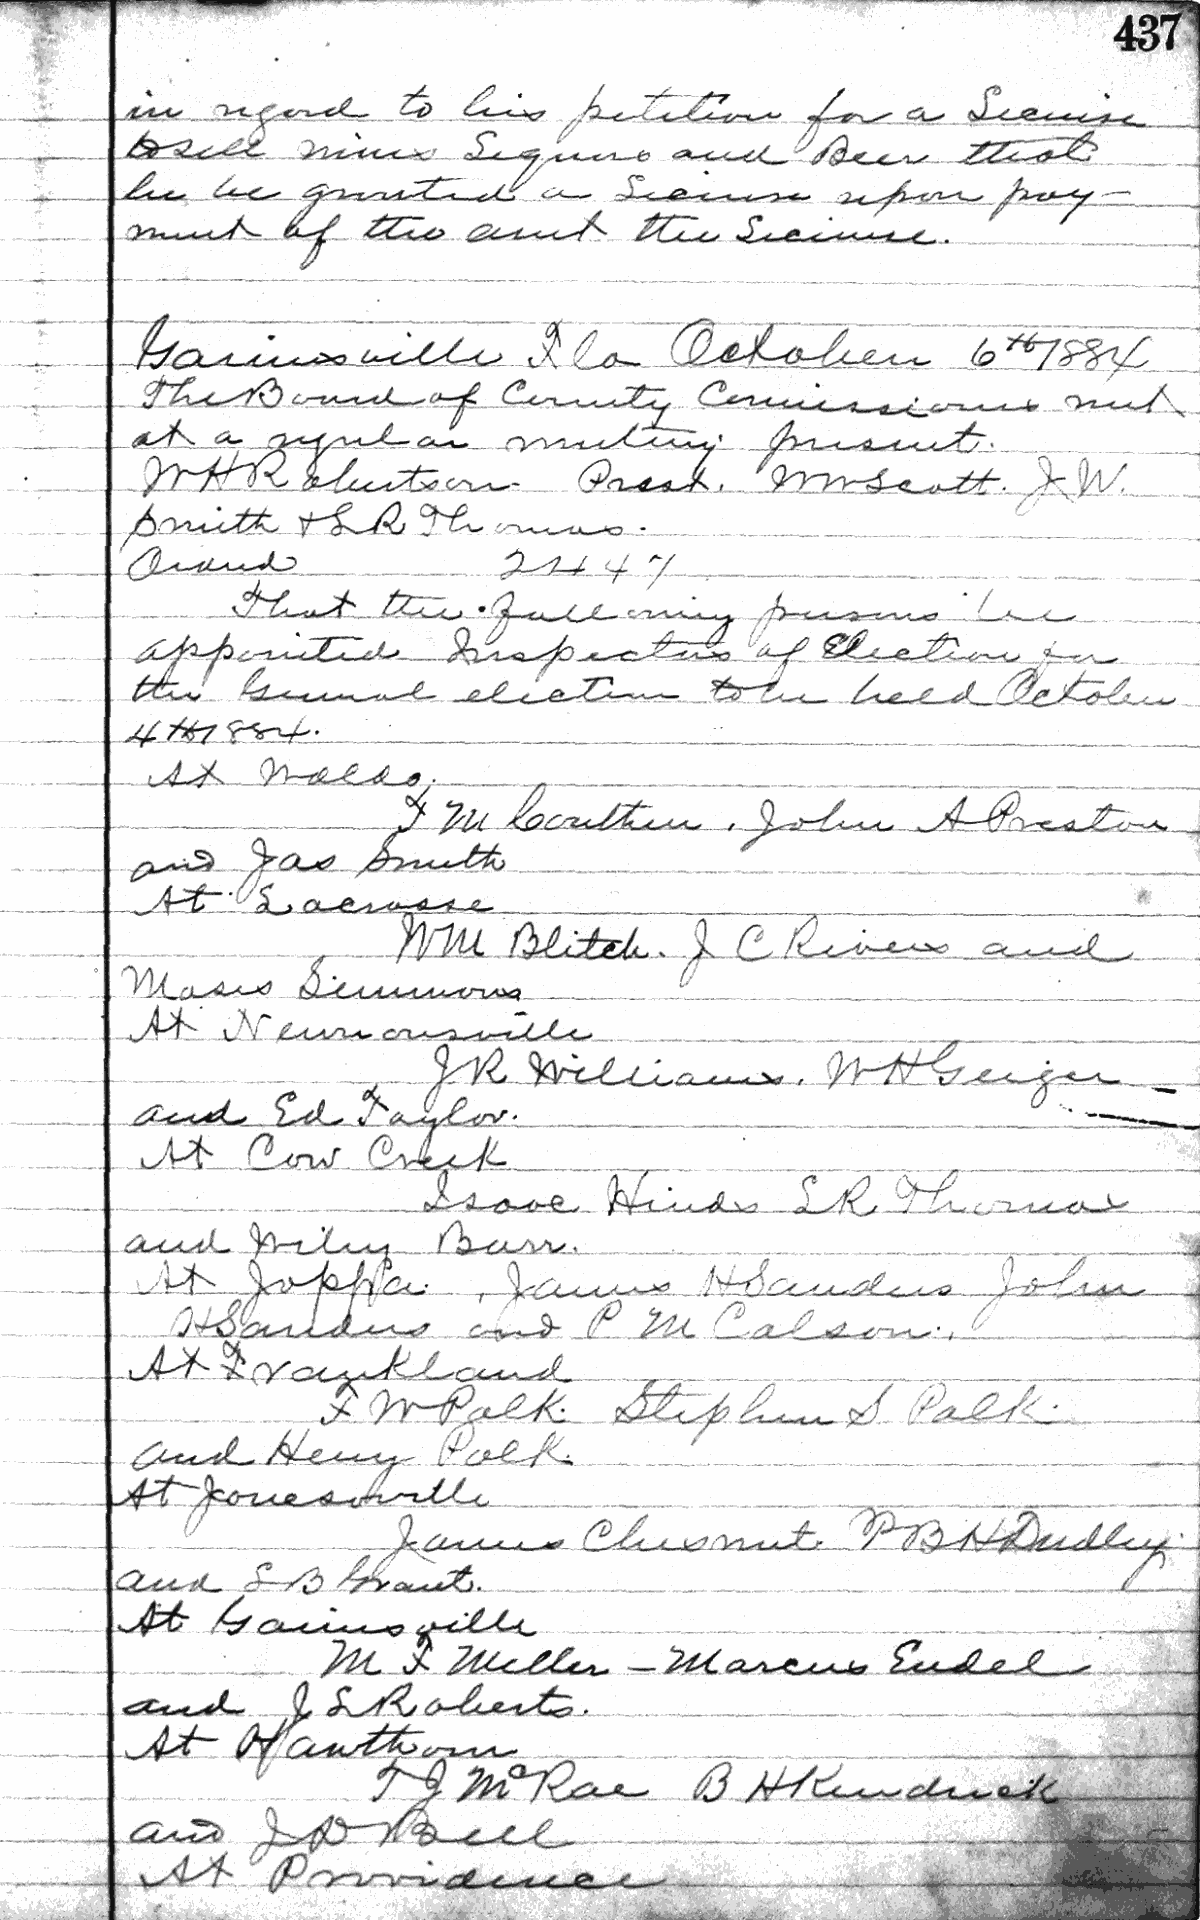 437
in regard to his petition for a License
to sell wines Liquors and Beer that
he be granted a License upon pay-
ment of the amt the License.
Gainesville Fla October 6th 1884
The Board of County Commissioners met
at a regular meeting present.
W H R obertson. Prest. W W Scott. J. W.
Smith & L R Thomas.
Orderd 2447
That the following persons be
appointed Inspectors of Election for
the General election to be held October
4th 1884.
At Waldo.
F M Coulthen. John A Preston
and Jas Smith
At Lacrosse
W M Blitch. J C Rivers and
Moses Simmons
At Newnansville
J R Williams. W H Geiger
and Ed Taylor.
At Cow Creek
Isaac Hinds L R Thomas
and Wiley Barr.
At Joppa. James H Sanders John
H Sanders and P M Calson.
At Frankland
F W Polk. Stephen S Polk.
and Henry Polk.
At Jonesville
James Chesnut. P B H Dudley
and L B Grant.
At Gainesville
M F Miller - Marcus Endel
and J L Roberts.
At Hawthorn
T J McRae B H Kendrick
and J D Bell
At Providence